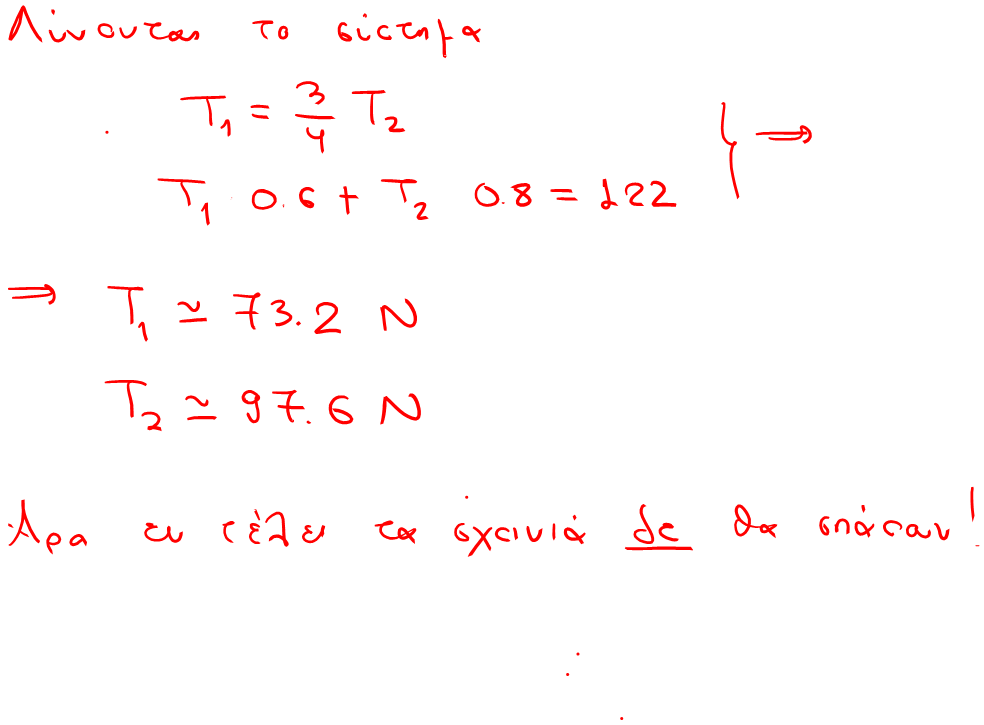 Λύνουτας το σύστημα
T₁ = 3/4 T₂
T₁ 0.6 + T₂ 0.8 = 122 } ⇒
⇒ T₁ ≃ 73.2 N
T₂ ≃ 97.6 N
Άρα εν τέλει τα σχοινιά δε θα σπάσουν!